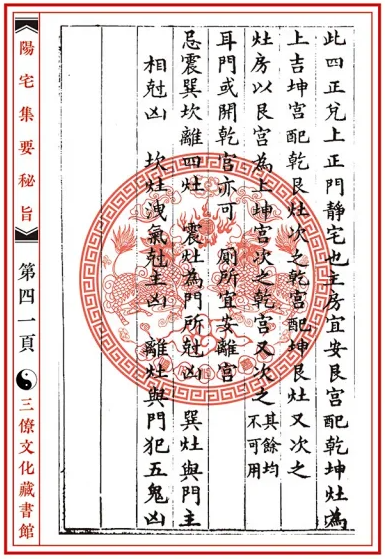 此四正兌上正門靜宅也主房宜安艮宮配乾坤灶為
上吉坤宮配乾艮灶次之乾宮配坤艮灶又次之
灶房以艮宮為上坤宮次之乾宮又次之其餘均不可用
耳門或開乾宮亦可 廁所宜安離宮
忌震巽坎離四灶 震灶為門所尅凶 巽灶與門主
相尅凶 坎灶洩氣尅主凶 離灶與門犯五鬼凶
陽宅集要秘旨
第四一頁
三僚文化藏書館